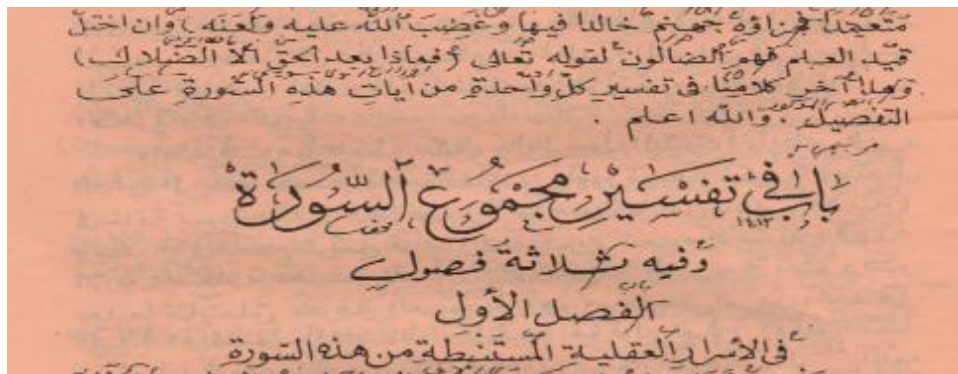 متعمدا فجزاؤه جهنم خالدا فيها وغضب الله عليه ولعنه) وان اختل
قيد العلم فهم الضالون لقوله تعالى (فماذا بعد الحق الا الضلال)
وهذا آخر كلامنا فى تفسير كل واحدة من آيات هذه السورة على
التفصيل . والله اعلم .
باب فى تفسير مجموع السورة
وفيه ثلاثة فصول
الفصل الأول
فى الأسرار العقلية المستنبطة من هذه السورة